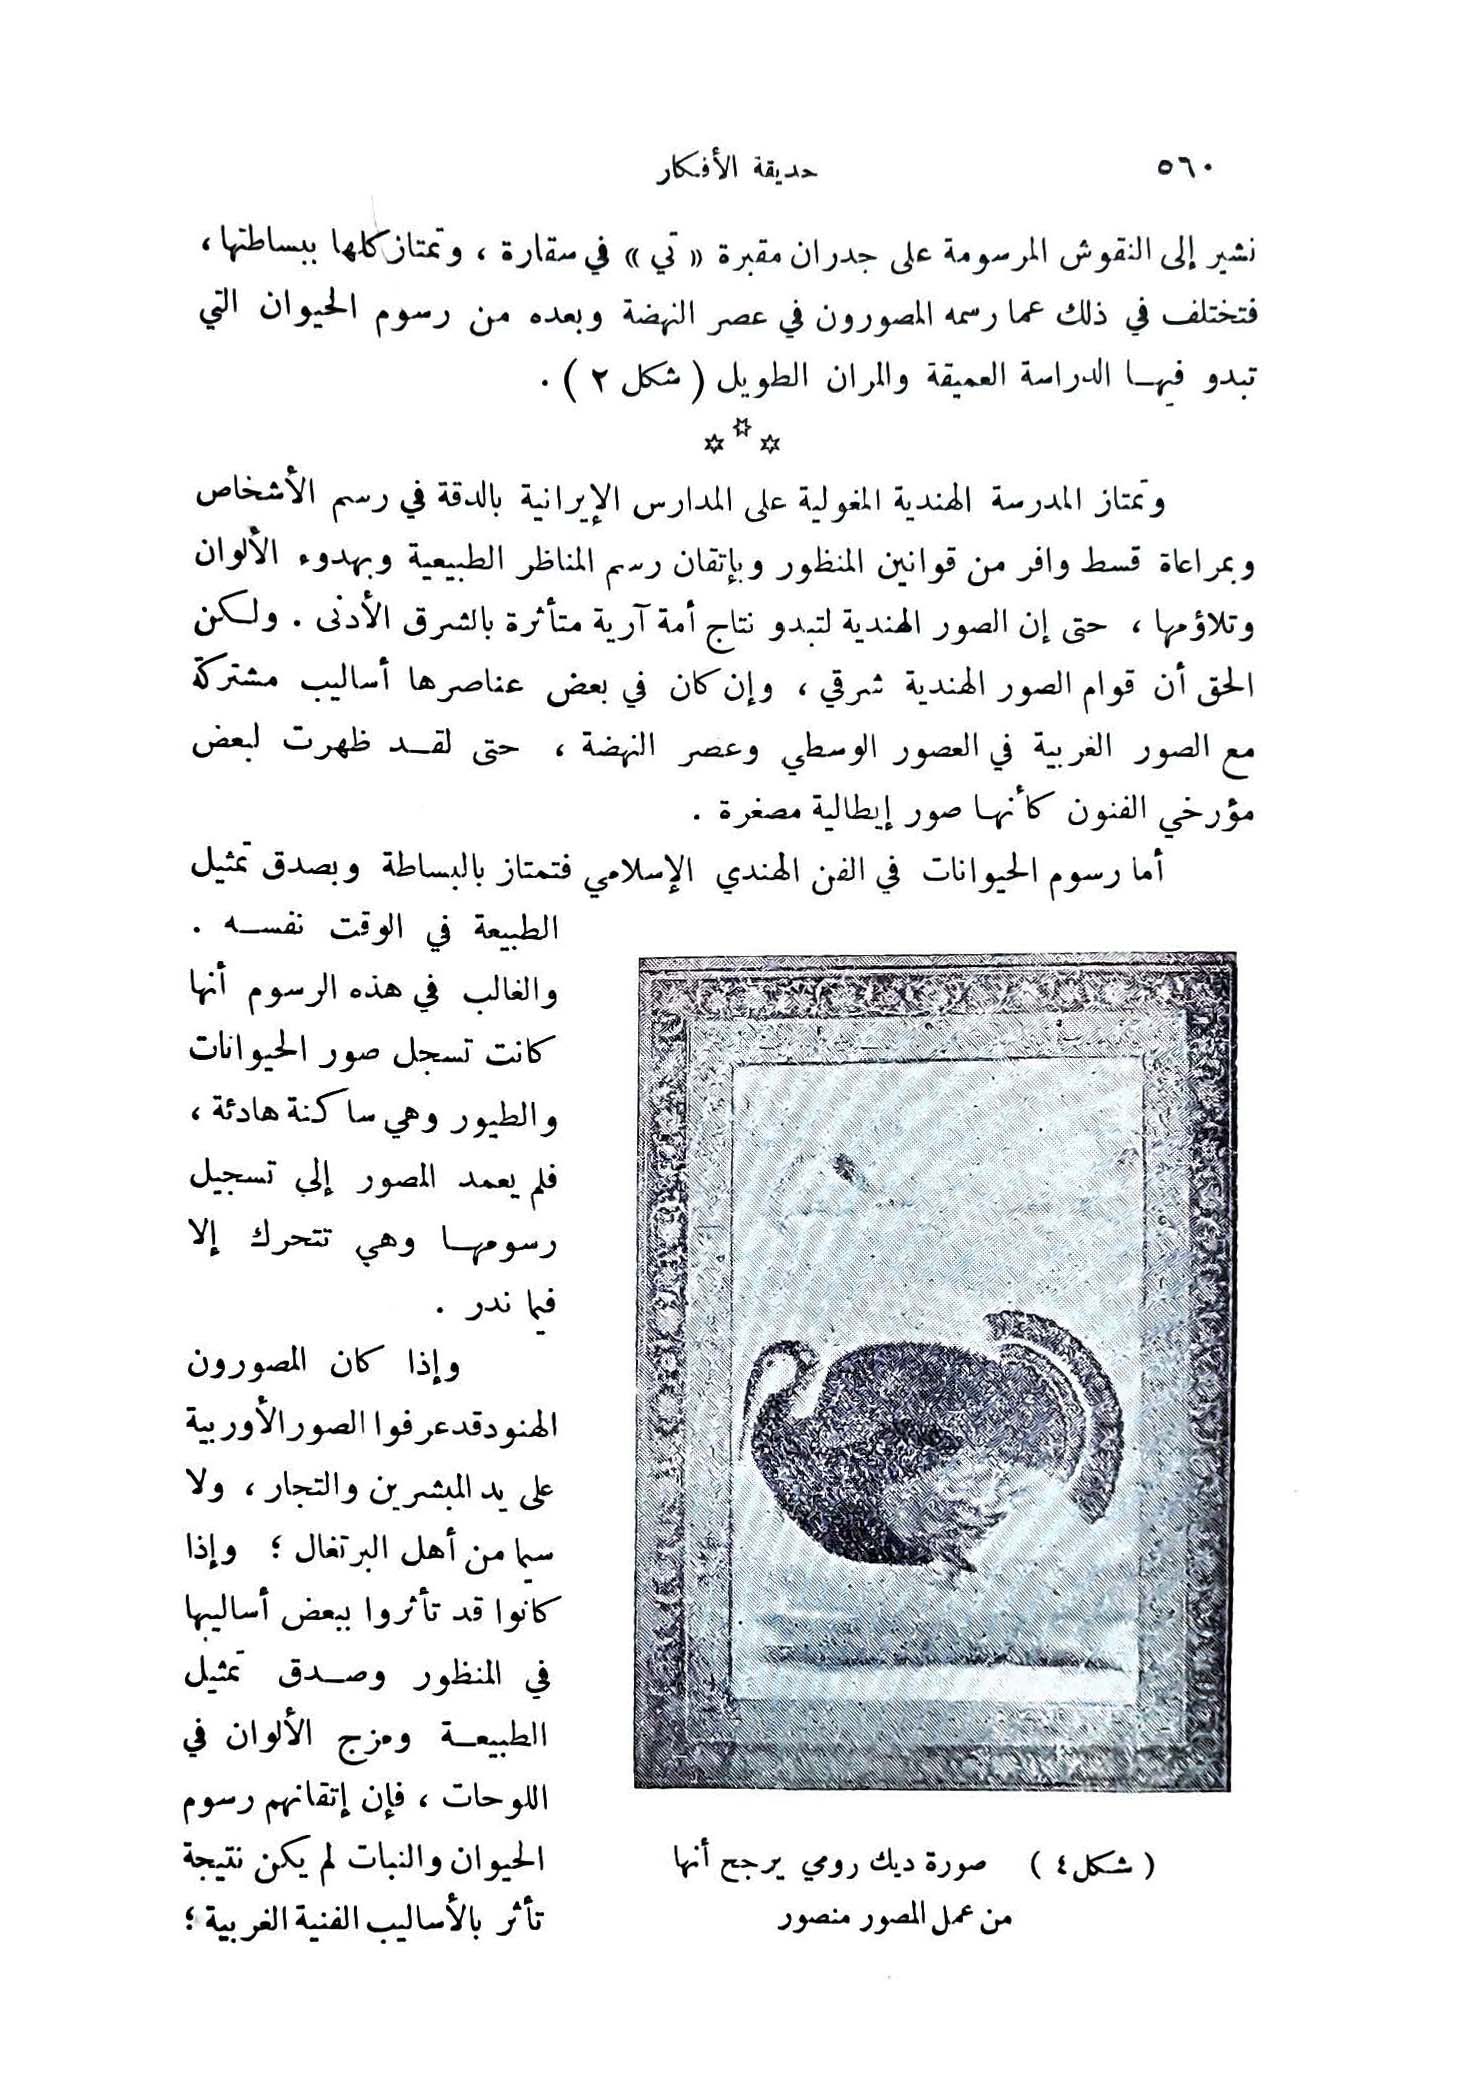 ٥٦٠
حديقة الأفكار
نشير إلى النقوش المرسومة على جدران مقبرة « تي » في سقارة ، وتمتاز كلها ببساطتها ،
فتختلف في ذلك عما رسمه المصورون في عصر النهضة وبعده من رسوم الحيوان التي
تبدو فيهــا الدراسة العميقة والمران الطويل ( شكل ٢ ) .
✡ ✡ ✡
وتمتاز المدرسة الهندية المغولية على المدارس الإيرانية بالدقة في رسم الأشخاص
وبمراعاة قسط وافر من قوانين المنظور وبإتقان رسم المناظر الطبيعية وبهدوء الألوان
وتلاؤمها ، حتى إن الصور الهندية لتبدو نتاج أمة آرية متأثرة بالشرق الأدنى . ولكن
الحق أن قوام الصور الهندية شرقي ، وإن كان في بعض عناصرها أساليب مشتركة
مع الصور الغربية في العصور الوسطي وعصر النهضة ، حتى لقــد ظهرت لبعض
مؤرخي الفنون كأنهــا صور إيطالية مصغرة .
أما رسوم الحيوانات في الفن الهندي الإسلامي فتمتاز بالبساطة وبصدق تمثيل
الطبيعة في الوقت نفســه .
والغالب في هذه الرسوم أنها
كانت تسجل صور الحيوانات
والطيور وهي ساكنة هادئة ،
فلم يعمد المصور إلي تسجيل
رسومهــا وهي تتحرك إلا
فيما ندر .
وإذا كان المصورون
الهنود قد عرفوا الصور الأوربية
على يد المبشرين والتجار ، ولا
سيما من أهل البرتغال ؛ وإذا
كانوا قد تأثروا ببعض أساليبها
في المنظور وصــدق تمثيل
الطبيعــة ومزج الألوان في
اللوحات ، فإن إتقانهم رسوم
الحيوان والنبات لم يكن نتيجة
تأثر بالأساليب الفنية الغربية ؛
( شكل ٤ ) صورة ديك رومي يرجح أنها
من عمل المصور منصور